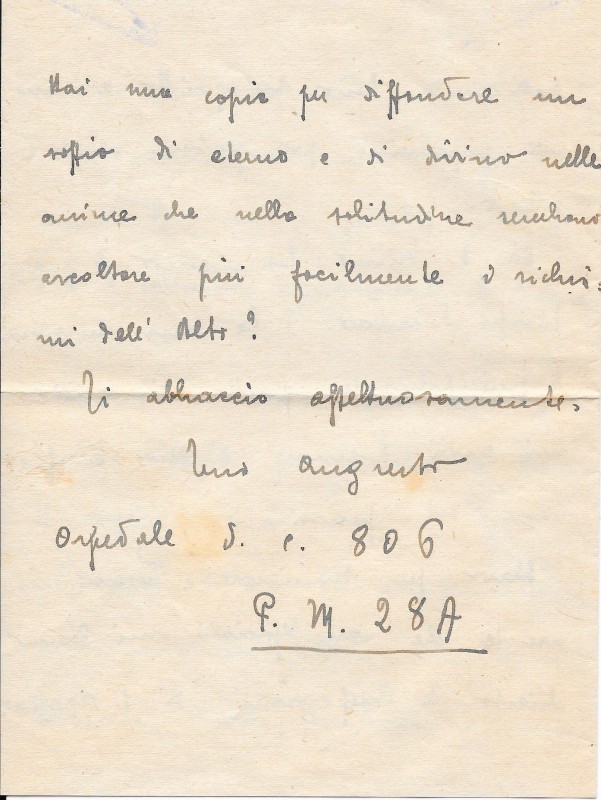 Hai una copia per diffondere un
soffio di eterno e di divino nelle
anime che nella solitudine sembrano
ascoltare più facilmente i richia-
mi dell' Alto?
Ti abbraccio affettuosamente.
tuo Augusto
Ospedale d. c. 806
P. M. 28A